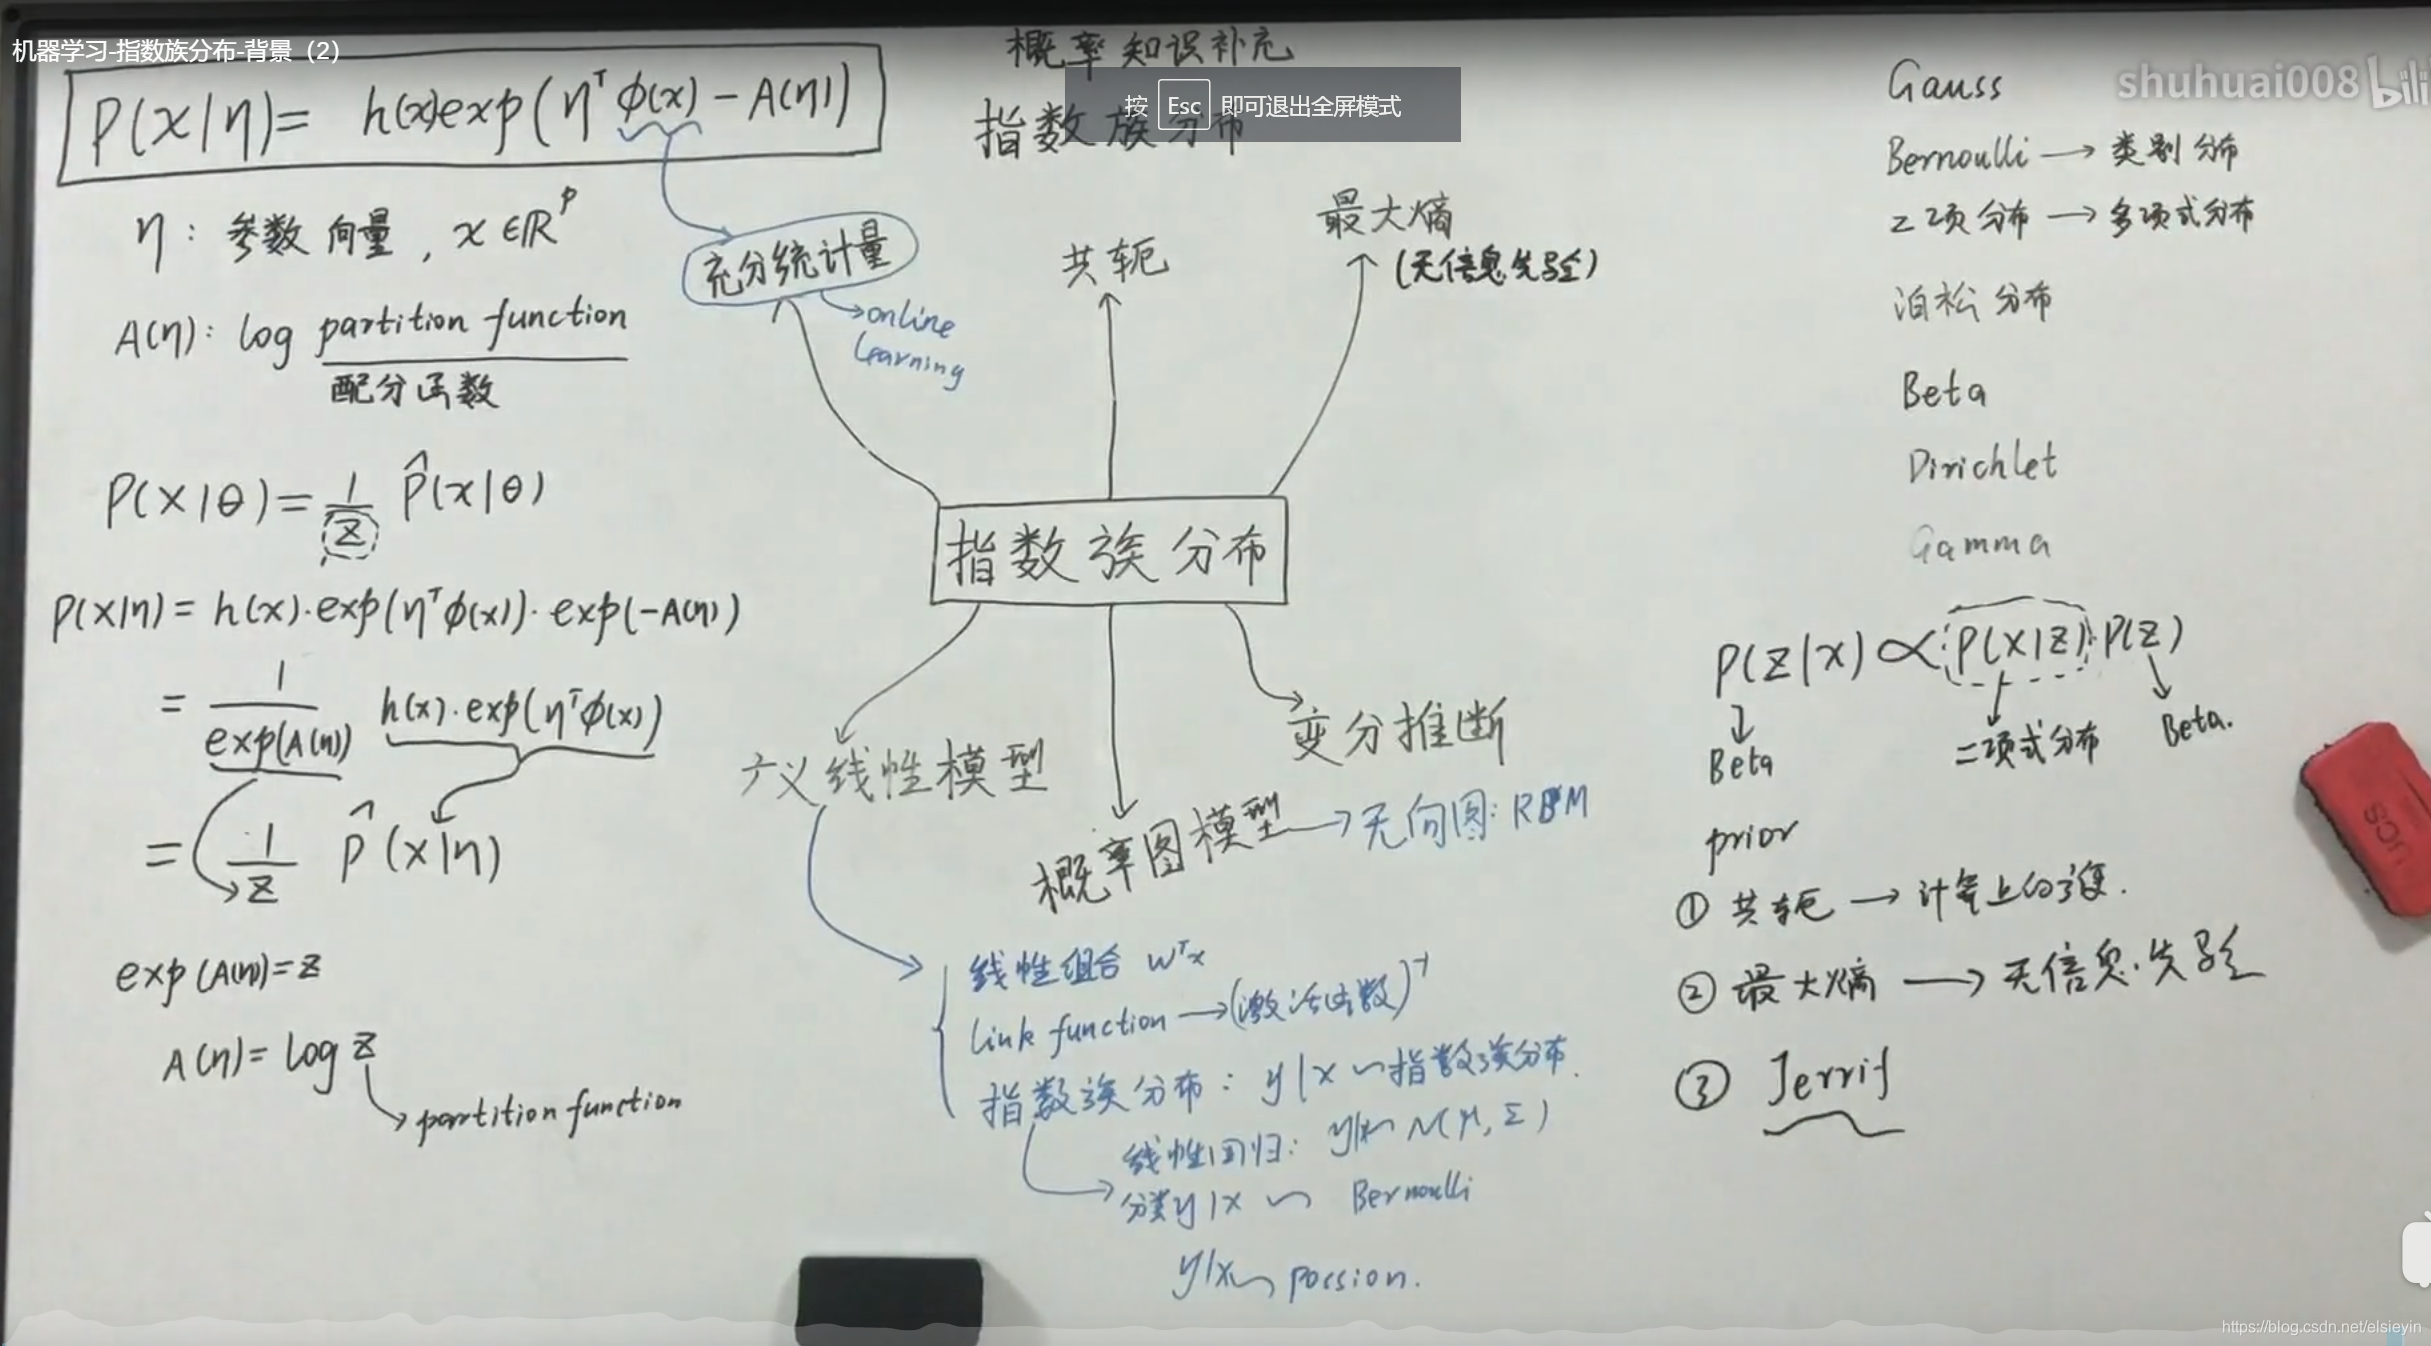 机器学习-指数族分布-背景（2）
shuhuai008
按 Esc 即可退出全屏模式
概率知识补充
指数族分布
P(x|η) = h(x)exp(η^T φ(x) - A(η))
η: 参数向量, x∈R^p
A(η): log partition function
配分函数
P(x|θ) = 1/z P̂(x|θ)
P(x|η) = h(x)·exp(η^T φ(x))·exp(-A(η))
= 1/exp(A(η)) h(x)·exp(η^T φ(x))
= 1/z P̂(x|η)
exp(A(η)) = z
A(η) = log z
→ partition function
充分统计量
→ online
learning
共轭
最大熵
(无信息先验)
指数族分布
广义线性模型
概率图模型 → 无向图: RBM
变分推断
线性组合 w^T x
link function → (激活函数)^-1
指数族分布: y|x ~ 指数族分布.
线性回归: y|x ~ N(μ, Σ)
分类 y|x ~ Bernoulli
y|x ~ possion.
Gauss
Bernoulli → 类别分布
二项分布 → 多项式分布
泊松分布
Beta
Dirichlet
Gamma
P(z|x) ∝ P(x|z) P(z)
Beta
二项式分布
Beta.
prior
① 共轭 → 计算上的方便.
② 最大熵 → 无信息先验
③ Jerrif
https://blog.csdn.net/elsieyin